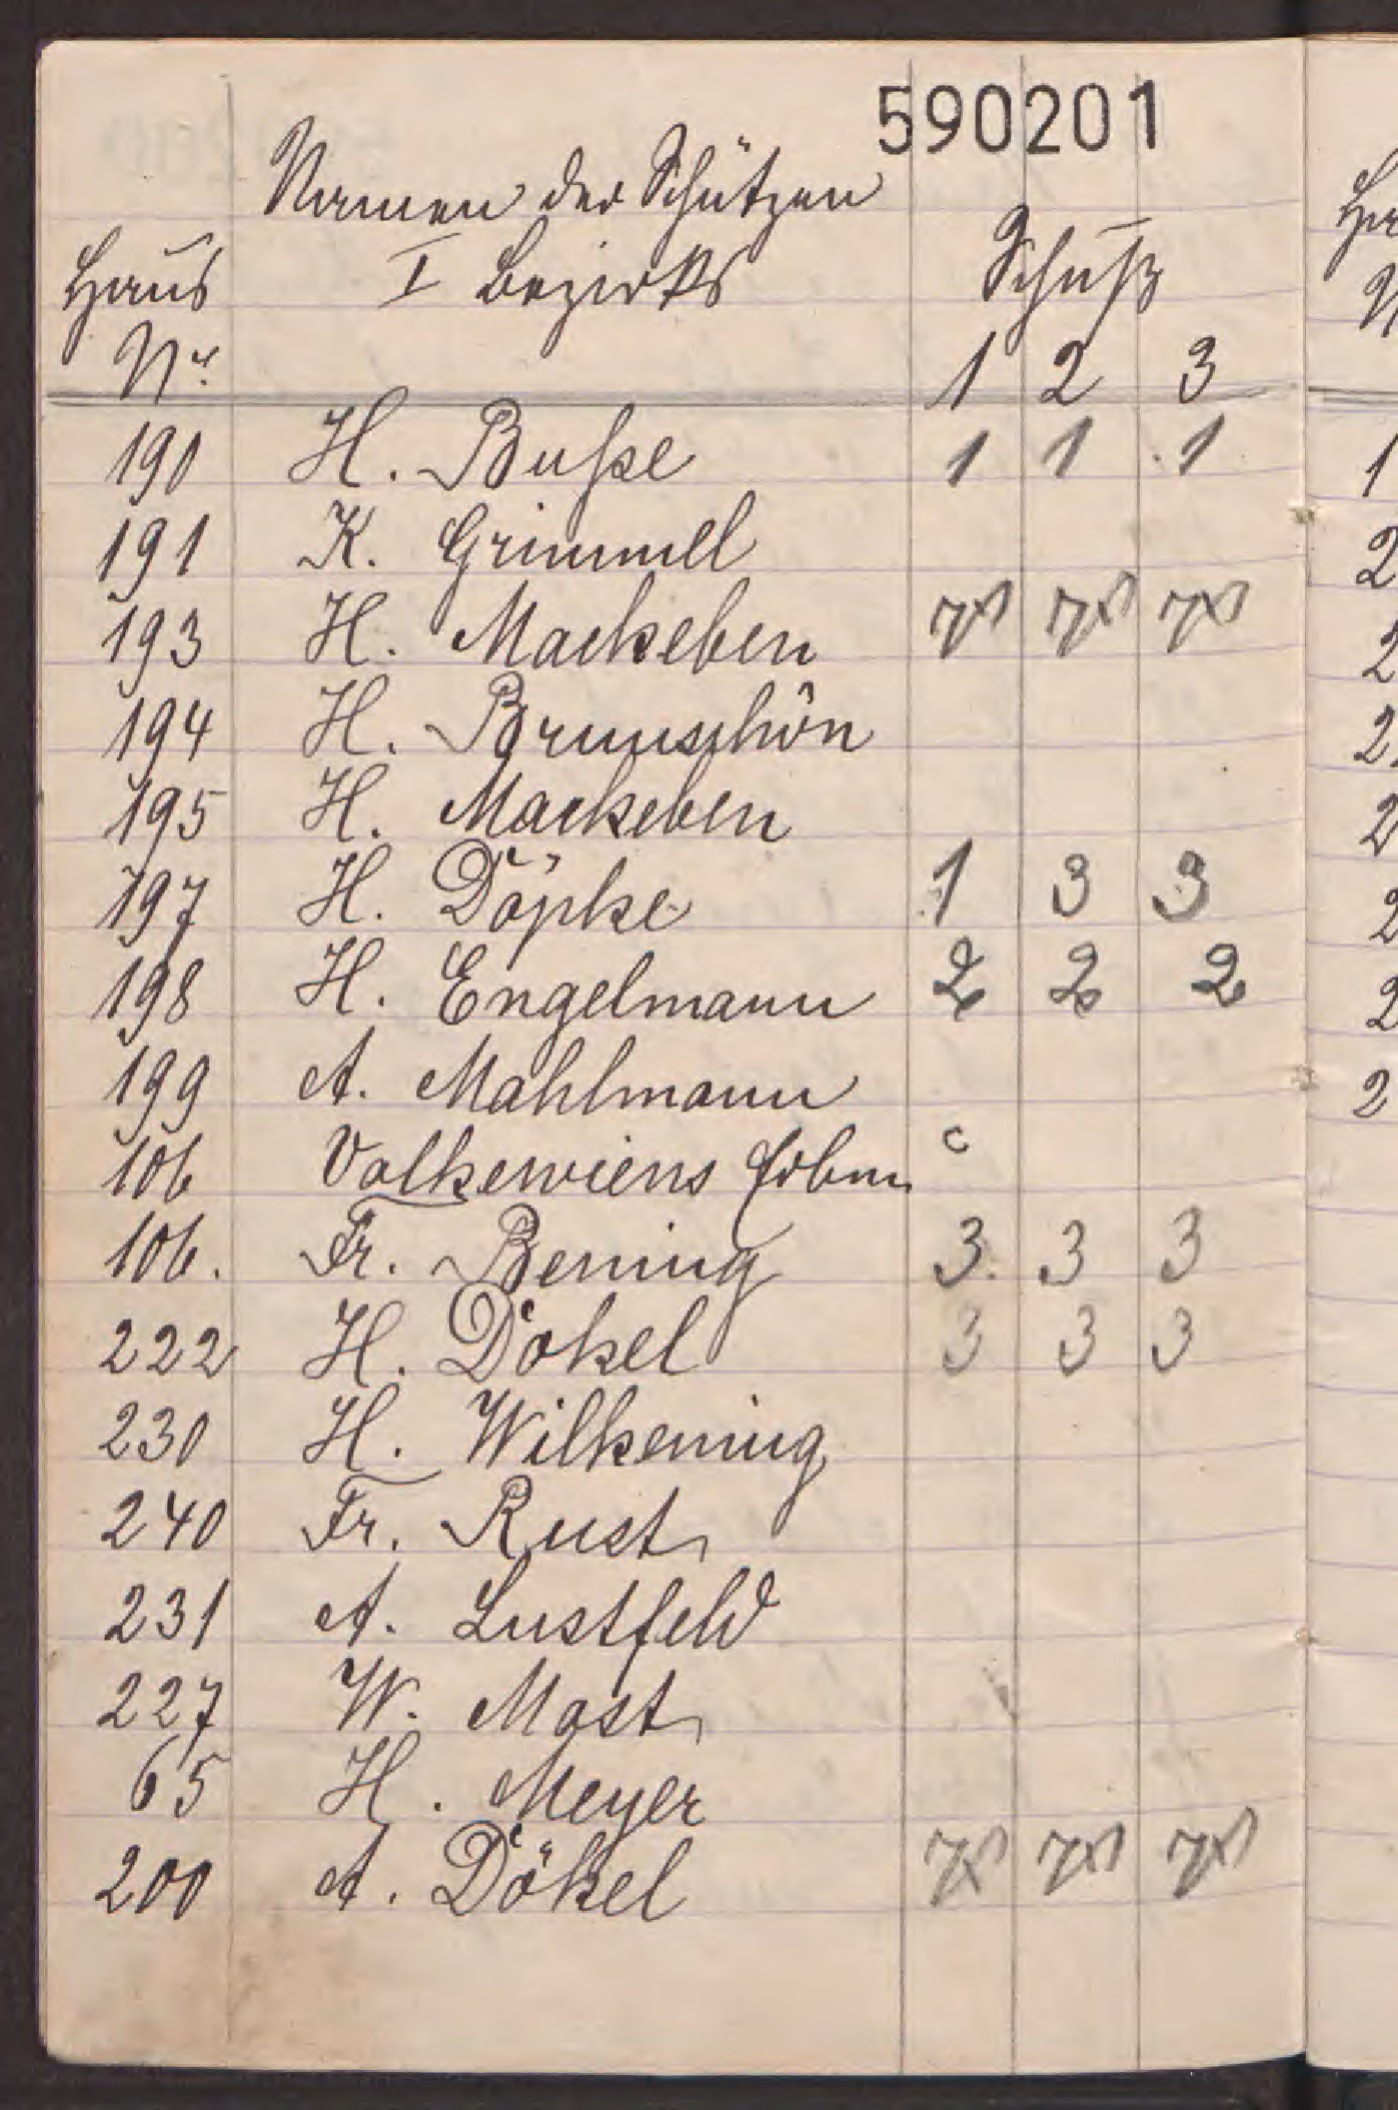 590201
Namen der Schützen
Haus I Bezirks Schuß
Nr. 1 2 3
190 H. Buße 1 1 1
191 K. Grimmel
193 H. Mackeben
194 H. Brunschön
195 H. Mackeben
197 H. Döpke 1 3 3
198 H. Engelmann 2 2 2
199 A. Mahlmann
106 Volkewiens
106. Fr. Bening 3 3 3
222 H. Dökel 3 3 3
230 H. Wilkening
240 Fr. Rust
231 A. Lustfeld
227 W. Mast
65 H. Meyer
200 A. Dökel